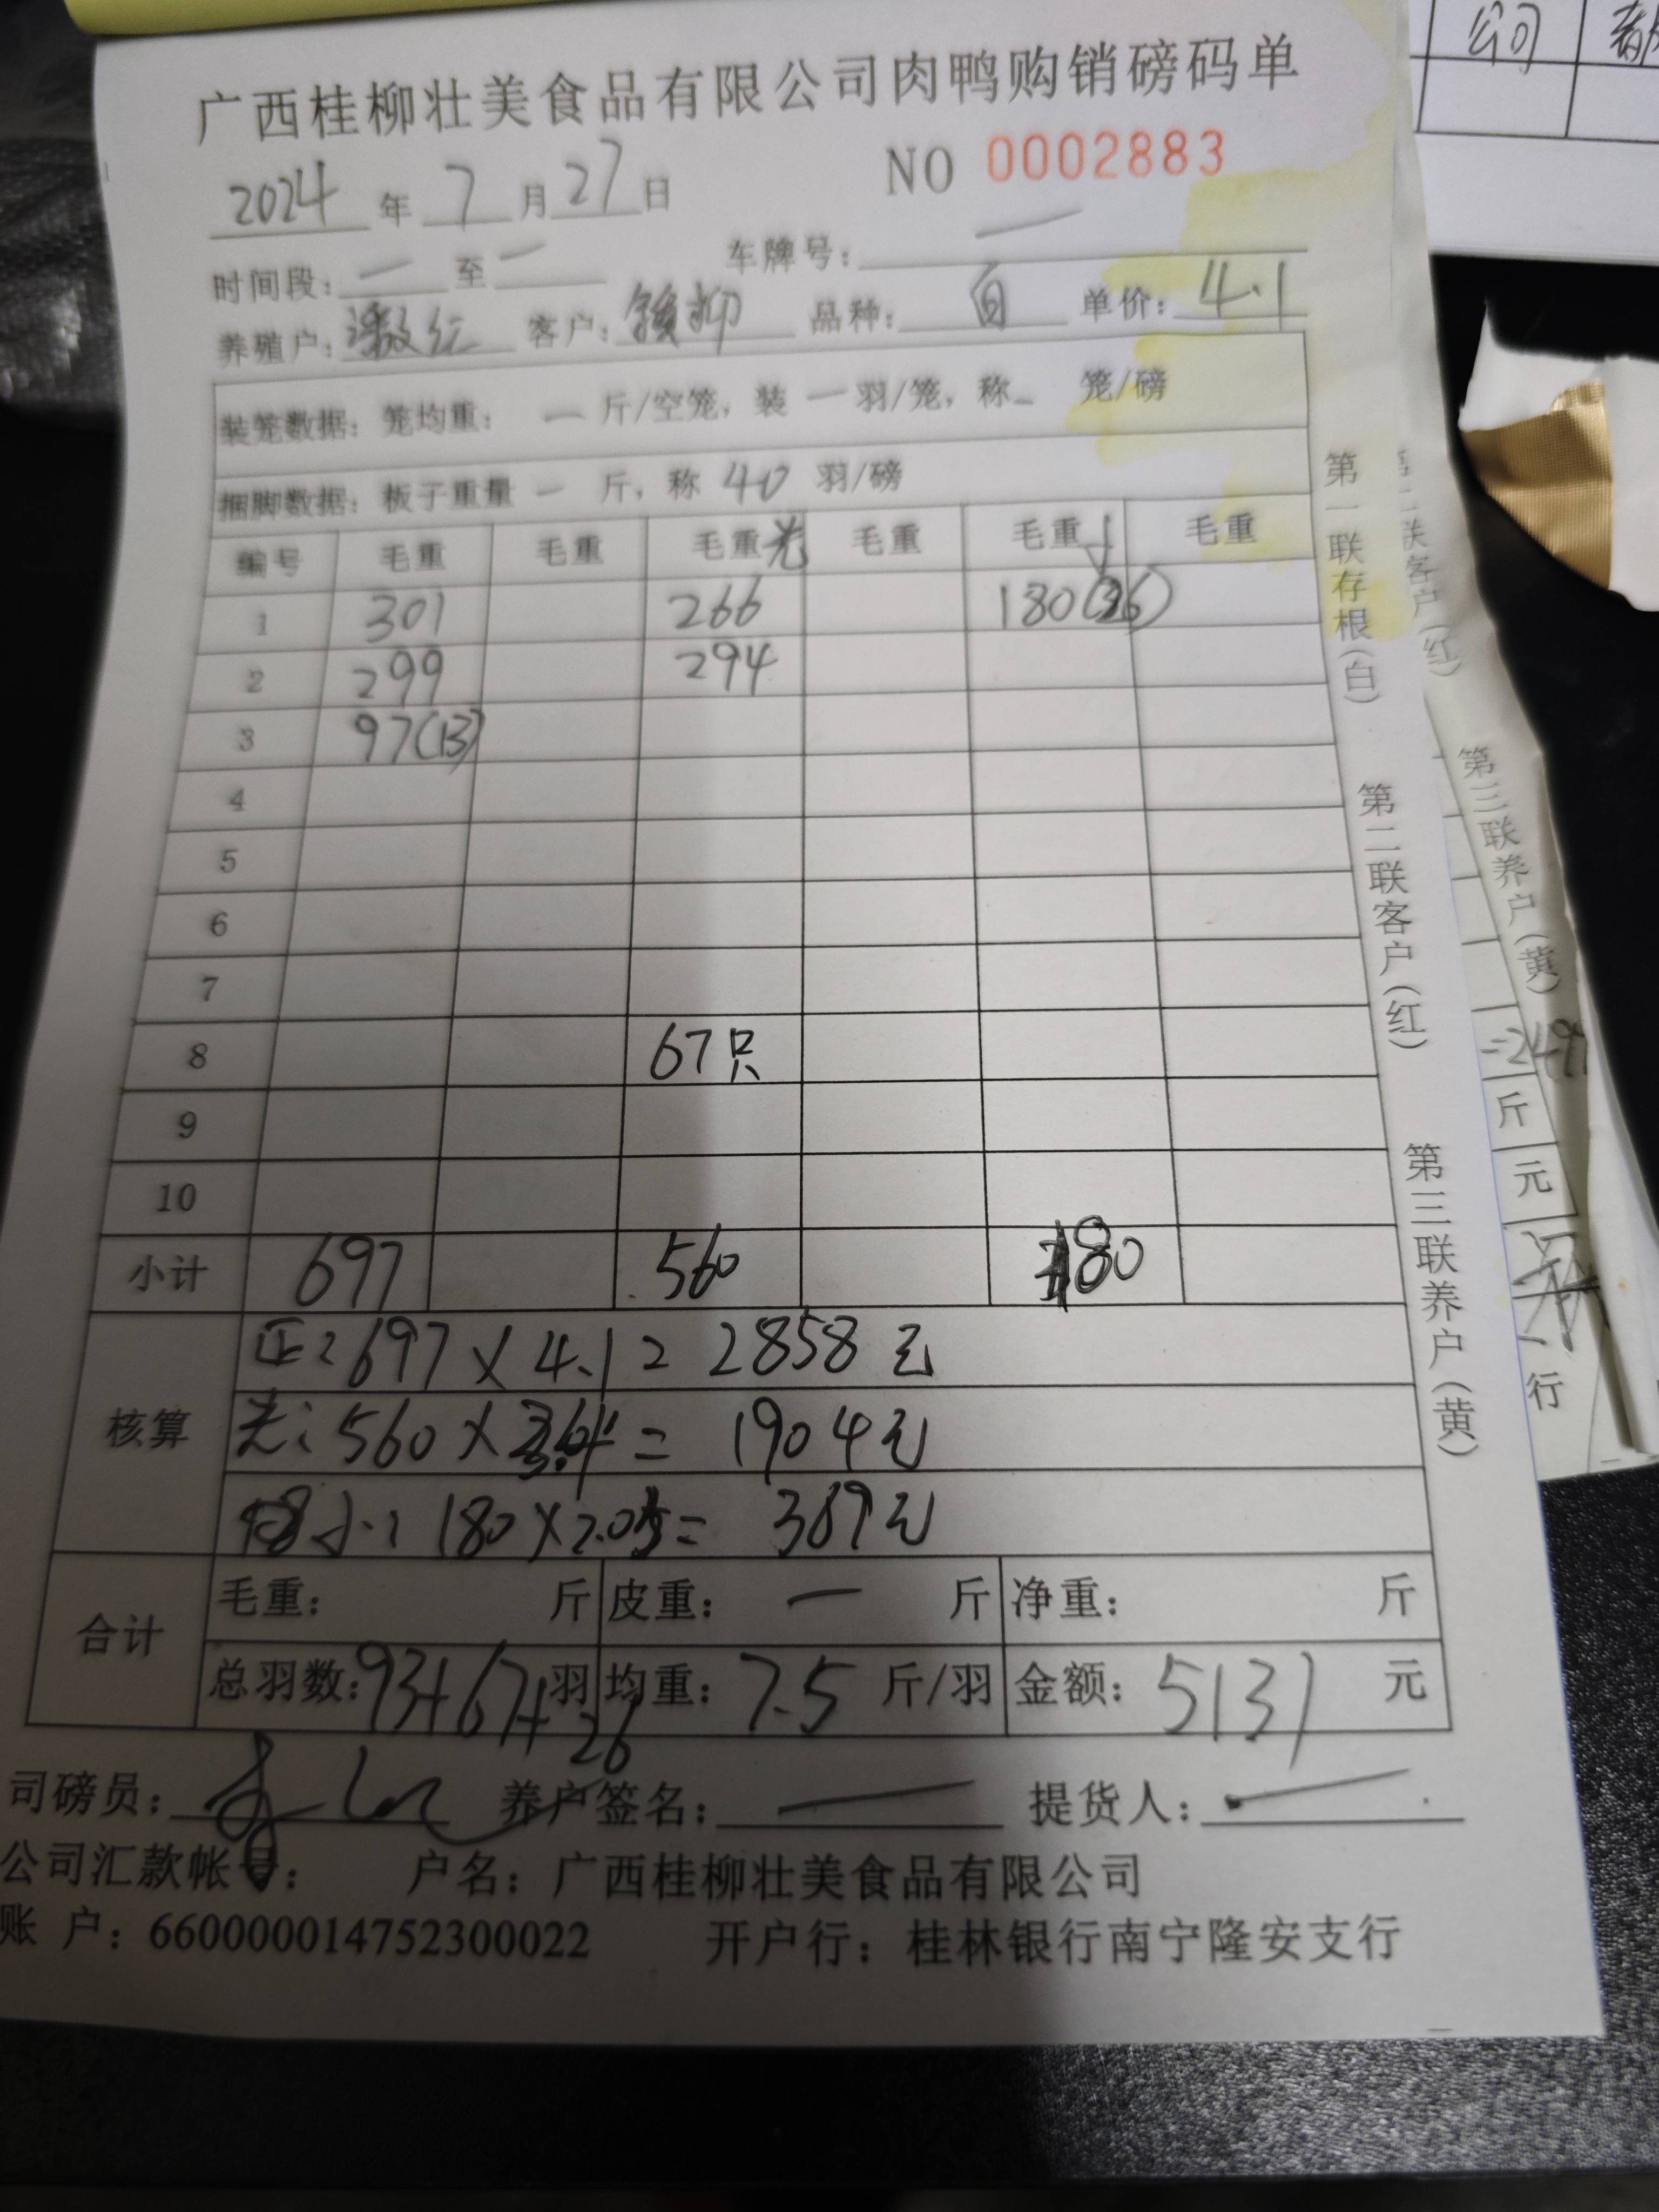 广西桂柳壮美食品有限公司肉鸭购销磅码单
2024 年 7 月 27 日 NO 0002883
时间段: 一 至 一 车牌号: 一
养殖户: 客户: 品种: 白 单价: 4.1
装笼数据: 笼均重: 一 斤/空笼, 装 一 羽/笼, 称 一 笼/磅
捆脚数据: 板子重量 一 斤, 称 40 羽/磅
编号 毛重 毛重 毛重光 毛重 毛重小 毛重
1 301 266 180(26)
2 299 294
3 97(13)
4
5
6
7
8 67只
9
10
小计 697 560 180
核算
正: 697 × 4.1 = 2858 元
光: 560 × 3.4 = 1904元
小: 180 × 2.05 = 369元
合计
毛重: 斤 皮重: 一 斤 净重: 斤
总羽数: 93+67+26 羽 均重: 7.5 斤/羽 金额: 5131 元
司磅员: 养户签名: 一 提货人: 一
公司汇款帐号: 户名: 广西桂柳壮美食品有限公司
账 户: 660000014752300022 开户行: 桂林银行南宁隆安支行
第一联存根(白) 第二联客户(红) 第三联养户(黄)
第二联客户(红) 第三联养户(黄)
斤
元
行
公司